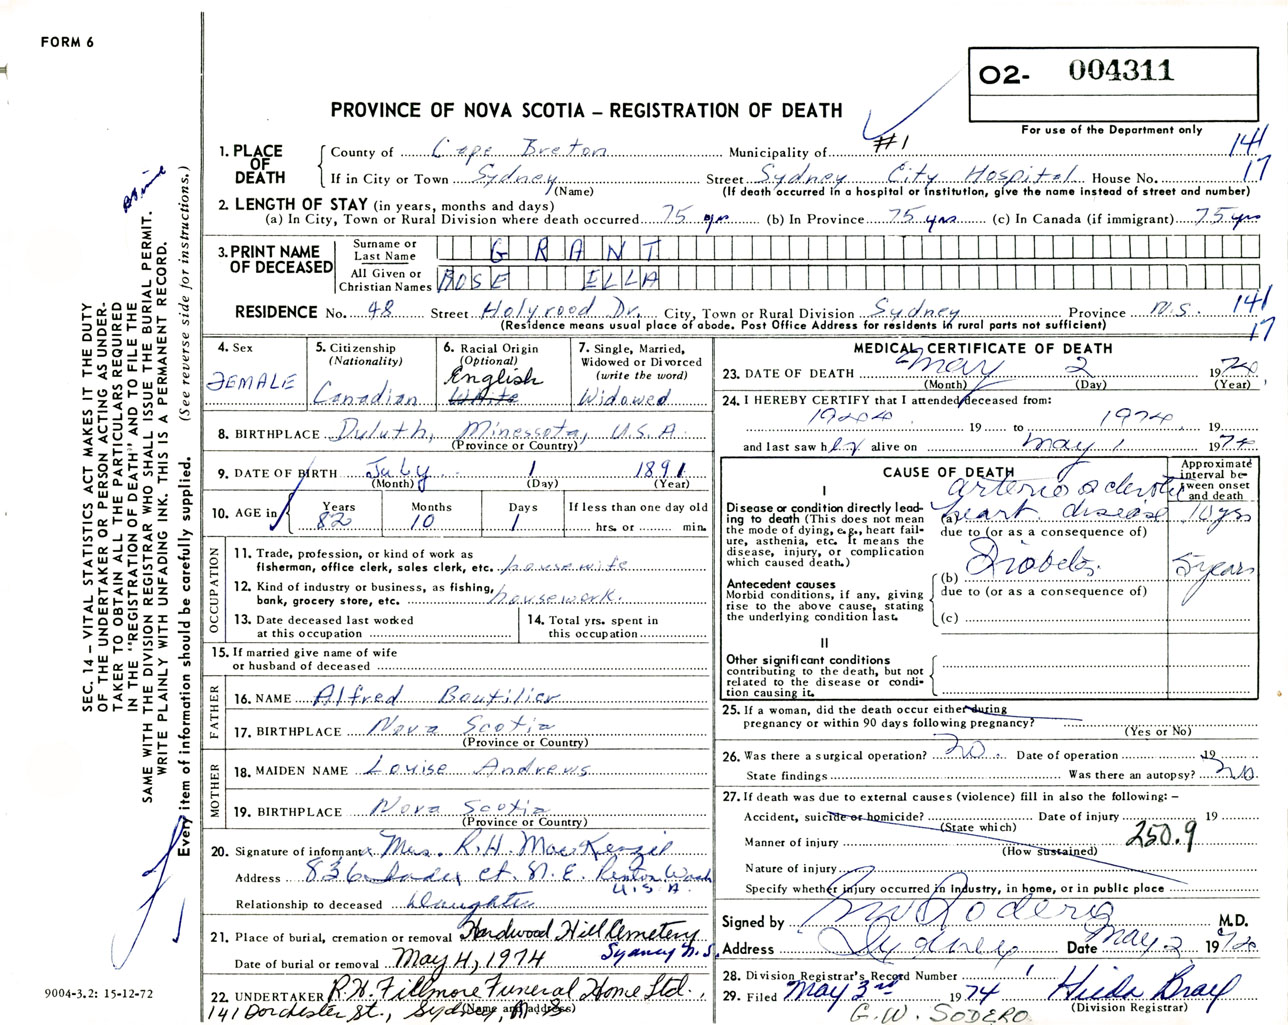 FORM 6
O2- 004311
PROVINCE OF NOVA SCOTIA – REGISTRATION OF DEATH
For use of the Department only
1. PLACE OF DEATH
County of Cape Breton Municipality of #1 141
If in City or Town Sydney Street Sydney City Hospital House No. 17
(Name) (If death occurred in a hospital or institution, give the name instead of street and number)
2. LENGTH OF STAY (in years, months and days)
(a) In City, Town or Rural Division where death occurred 75 yrs (b) In Province 75 yrs (c) In Canada (if immigrant) 75 yrs
3. PRINT NAME OF DECEASED
Surname or Last Name GRANT
All Given or Christian Names ROSE ELLA
RESIDENCE No. 48 Street Holyrood Dr. City, Town or Rural Division Sydney Province N.S. 141
(Residence means usual place of abode. Post Office Address for residents in rural parts not sufficient) 17
4. Sex
FEMALE
5. Citizenship
(Nationality)
Canadian
6. Racial Origin
(Optional)
English
White
7. Single, Married,
Widowed or Divorced
(write the word)
Widowed
8. BIRTHPLACE Duluth, Minessota, U.S.A.
(Province or Country)
9. DATE OF BIRTH July 1 1891
(Month) (Day) (Year)
10. AGE in
Years Months Days If less than one day old
82 10 1 hrs. or min.
OCCUPATION
11. Trade, profession, or kind of work as
fisherman, office clerk, sales clerk, etc. housewife
12. Kind of industry or business, as fishing,
bank, grocery store, etc. housework.
13. Date deceased last worked
at this occupation
14. Total yrs. spent in
this occupation
15. If married give name of wife
or husband of deceased
FATHER
16. NAME Alfred Boutilier
17. BIRTHPLACE Nova Scotia
(Province or Country)
MOTHER
18. MAIDEN NAME Louise Andrews
19. BIRTHPLACE Nova Scotia
(Province or Country)
20. Signature of informant x Mrs. R.H. MacKenzie
Address 836 Ct. N.E. Renton Wash
U.S.A.
Relationship to deceased Daughter
21. Place of burial, cremation or removal Hardwood Hill Cemetery
Sydney N.S.
Date of burial or removal May 4, 1974
22. UNDERTAKER R.H. Fillmore Funeral Home Ltd.,
(Name and address)
141 Dorchester St., Sydney, N.S.
MEDICAL CERTIFICATE OF DEATH
23. DATE OF DEATH May 2 1974
(Month) (Day) (Year)
24. I HEREBY CERTIFY that I attended deceased from:
19 to 1974 19
and last saw her alive on May 1 1974
CAUSE OF DEATH
Approximate interval between onset and death
I
Disease or condition directly leading to death (This does not mean the mode of dying, e.g., heart failure, asthenia, etc. It means the disease, injury, or complication which caused death.)
arteriosclerotic
(a) heart disease 10 yrs
due to (or as a consequence of)
Antecedent causes
Morbid conditions, if any, giving rise to the above cause, stating the underlying condition last.
(b) Diabetes. 5 years
due to (or as a consequence of)
(c)
II
Other significant conditions
contributing to the death, but not related to the disease or condition causing it.
25. If a woman, did the death occur either during
pregnancy or within 90 days following pregnancy?
(Yes or No)
26. Was there a surgical operation? no. Date of operation 19
State findings Was there an autopsy? no.
27. If death was due to external causes (violence) fill in also the following: –
Accident, suicide or homicide? Date of injury 19
(State which)
Manner of injury 250.9
(How sustained)
Nature of injury
Specify whether injury occurred in Industry, in home, or in public place
Signed by Sodero M.D.
Address Sydney Date May 2 1974
28. Division Registrar's Record Number 1
29. Filed May 3rd 1974 Hilda Bray
(Division Registrar)
G.W. SODERO
SEC. 14 – VITAL STATISTICS ACT MAKES IT THE DUTY
OF THE UNDERTAKER OR PERSON ACTING AS UNDER-
TAKER TO OBTAIN ALL THE PARTICULARS REQUIRED
IN THE "REGISTRATION OF DEATH" AND TO FILE THE
SAME WITH THE DIVISION REGISTRAR WHO SHALL ISSUE THE BURIAL PERMIT.
WRITE PLAINLY WITH UNFADING INK. THIS IS A PERMANENT RECORD.
Every item of information should be carefully supplied. (See reverse side for instructions.)
9004-3.2: 15-12-72